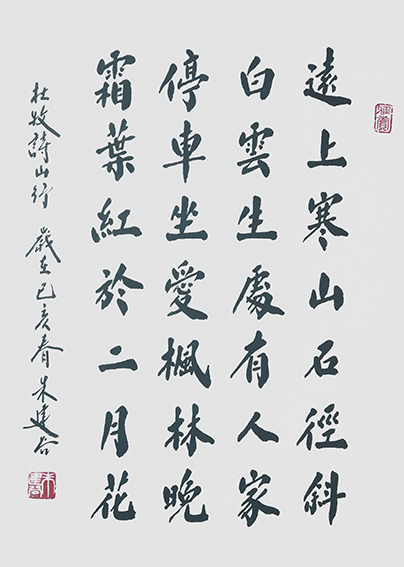 遠上寒山石徑斜
白雲生處有人家
停車坐愛楓林晚
霜葉紅於二月花
杜牧詩山行 歲在己亥春 朱建